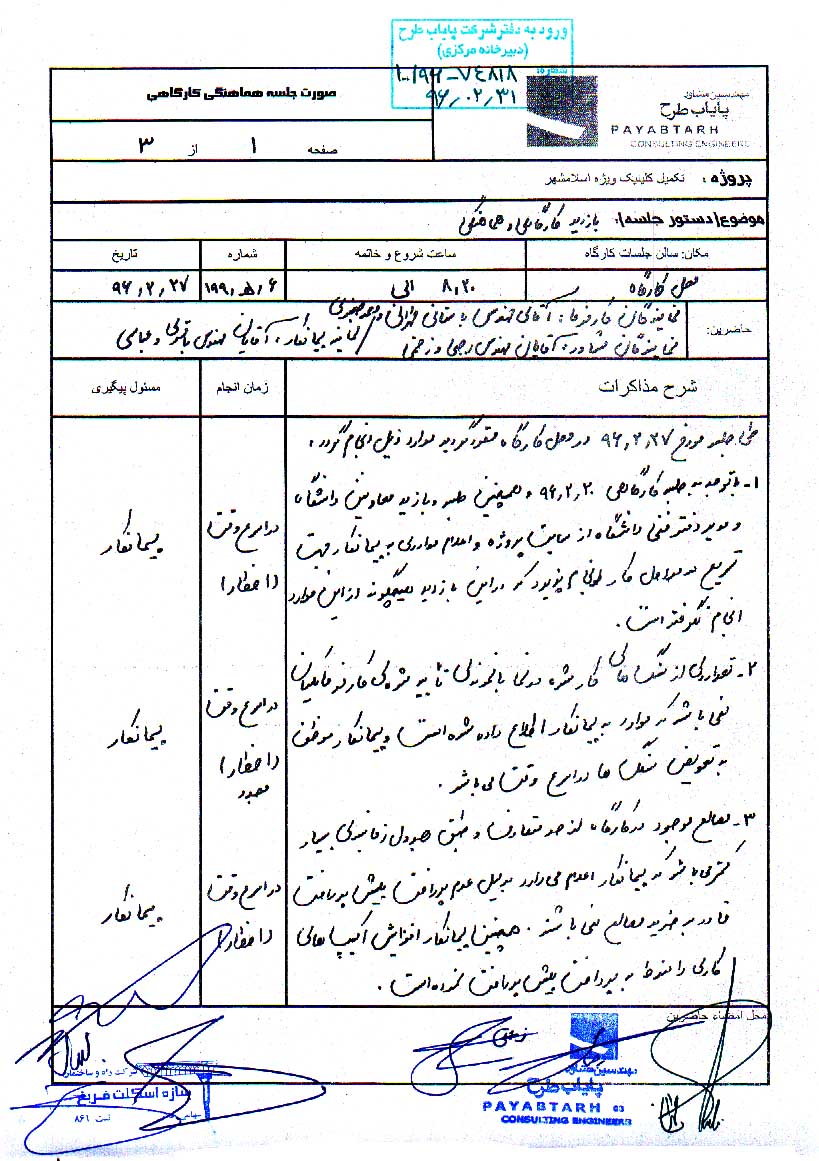 ورود به دفتر شرکت پایاب طرح
(دبیرخانه مرکزی)
شماره
۱۰۰/۹۶-۷۴۸۱۸
۹۶,۰۲,۳۱
صورت جلسه هماهنگی کارگاهی
مهندسین مشاور
پایاب طرح
PAYABTARH
CONSULTING ENGINEERS
صفحه ۱ از ۳
پروژه : تکمیل کلینیک ویژه اسلامشهر
موضوع(دستور جلسه): بازدید کارگاهی و هماهنگی
مکان: سالن جلسات کارگاه ساعت شروع و خاتمه شماره تاریخ
محل کارگاه ۸,۳۰ الی ۱۹۹,ه,۶ ۹۶,۲,۲۷
حاضرین: نمایندگان کارفرما : آقای مهندس
نمایندگان مشاور : آقایان مهندس رجبی و نماینده پیمانکار : آقایان مهندس و عباسی
شرح مذاکرات زمان انجام مسئول پیگیری
طی جلسه مورخ ۹۶,۲,۲۷ در محل کارگاه مقرر گردید موارد ذیل انجام گردد :
۱- با توجه به جلسه کارگاهی ۹۶,۲,۲۰ و همچنین جلسه و بازدید معاونین دانشگاه
و مدیر دفتر فنی دانشگاه از سایت پروژه و اعلام مواردی به پیمانکار جهت
تسریع در مراحل کار انجام پذیرد که در این بازدید هیچگونه از این موارد
انجام نگرفته است .
در اسرع وقت
(اخطار)
پیمانکار
۲- تعدادی از سنگ های کار شده در نما با تأیید شده کارفرما یکسان
نمی باشد که موارد به پیمانکار اطلاع داده شده است و پیمانکار موظف
به تعویض سنگ ها در اسرع وقت می باشد .
در اسرع وقت
(اخطار)
مجدد
پیمانکار
۳- مصالح موجود در کارگاه از حد متعارف و طبق جدول زمانبندی بسیار
کمتر می باشد که پیمانکار اعلام می دارد بدلیل عدم پرداخت پیش پرداخت
قادر به خرید مصالح نمی باشند . همچنین پیمانکار افزایش اکیپ های
کاری را منوط به پرداخت پیش پرداخت نموده است .
در اسرع وقت
(اخطار)
پیمانکار
محل امضاء حاضرین
مهندسین مشاور
پایاب طرح
PAYABTARH 03
CONSULTING ENGINEERS
شرکت راه و ساختمان
سازه اسکلت فریغ
ثبت ۸۶۱